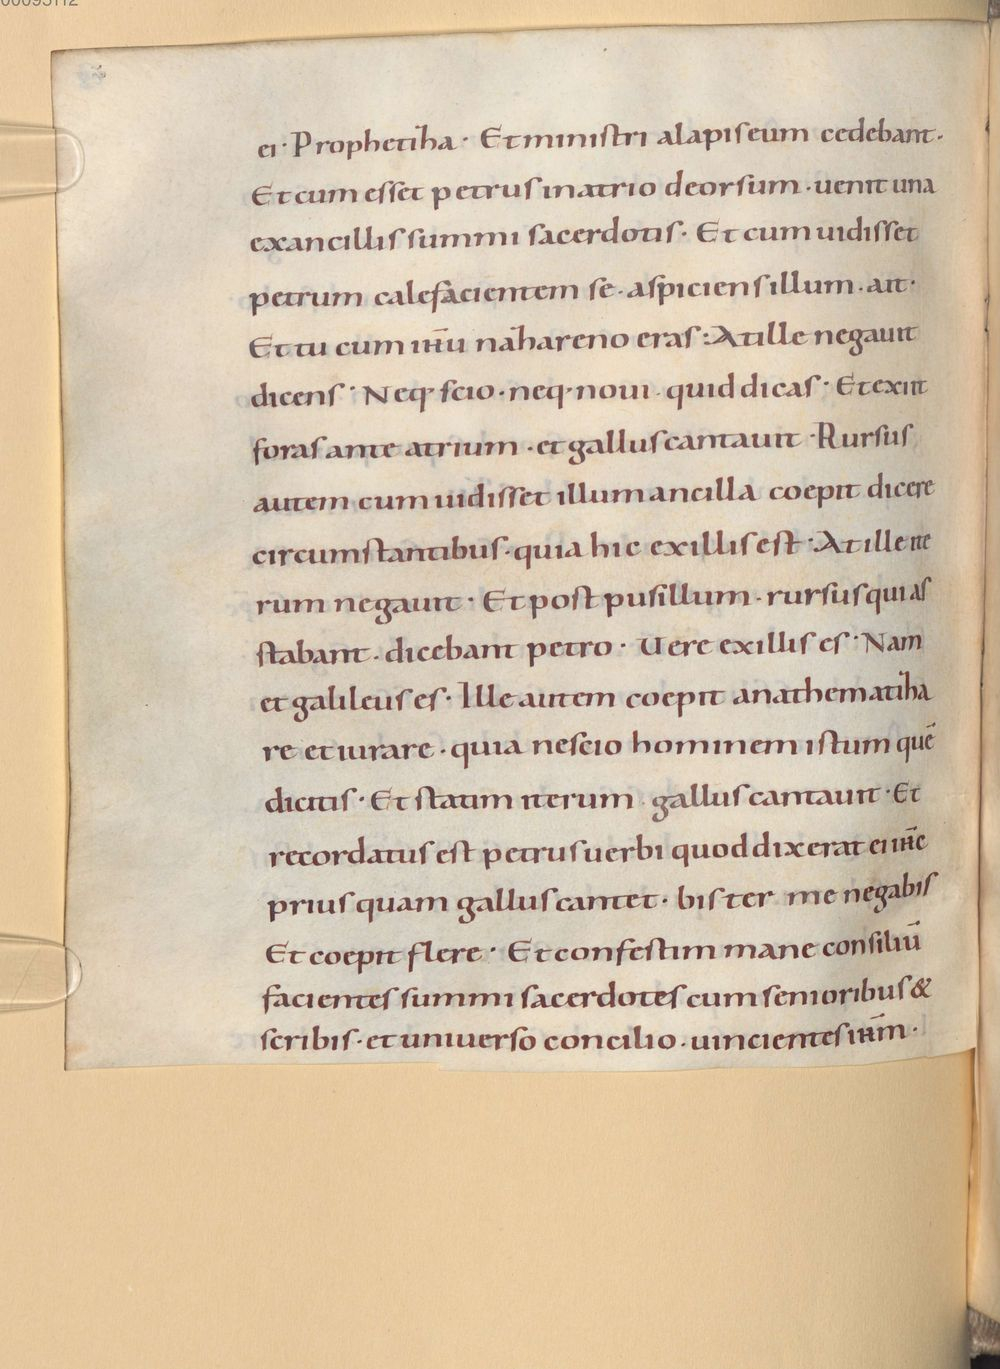 00095112
ei · Prophetiha · Et ministri alapis eum cedebant ·
Et cum esset petrus in atrio deorsum · uenit una
ex ancillis summi sacerdotis · Et cum uidisset
petrum calefacientem se · aspiciens illum · ait ·
Et tu cum ihu nahareno eras : At ille negauit
dicens · Neq· scio · neq· noui · quid dicas · Et exiit
foras ante atrium · et gallus cantauit · Rursus
autem cum uidisset illum ancilla coepit dicere
circumstantibus · quia hic ex illis est · At ille ite
rum negauit · Et post pusillum · rursus qui as
stabant · dicebant petro · Uere ex illis es · Nam
et galileus es · Ille autem coepit anathematiha
re et iurare · quia nescio hominem istum quē
dicitis · Et statim iterum gallus cantauit · Et
recordatus est petrus uerbi quod dixerat ei ihc
prius quam gallus cantet · bis ter me negabis
Et coepit flere · Et confestim mane consiliū
facientes summi sacerdotes cum senioribus &
scribis · et uniuerso concilio · uincientes ihm ·